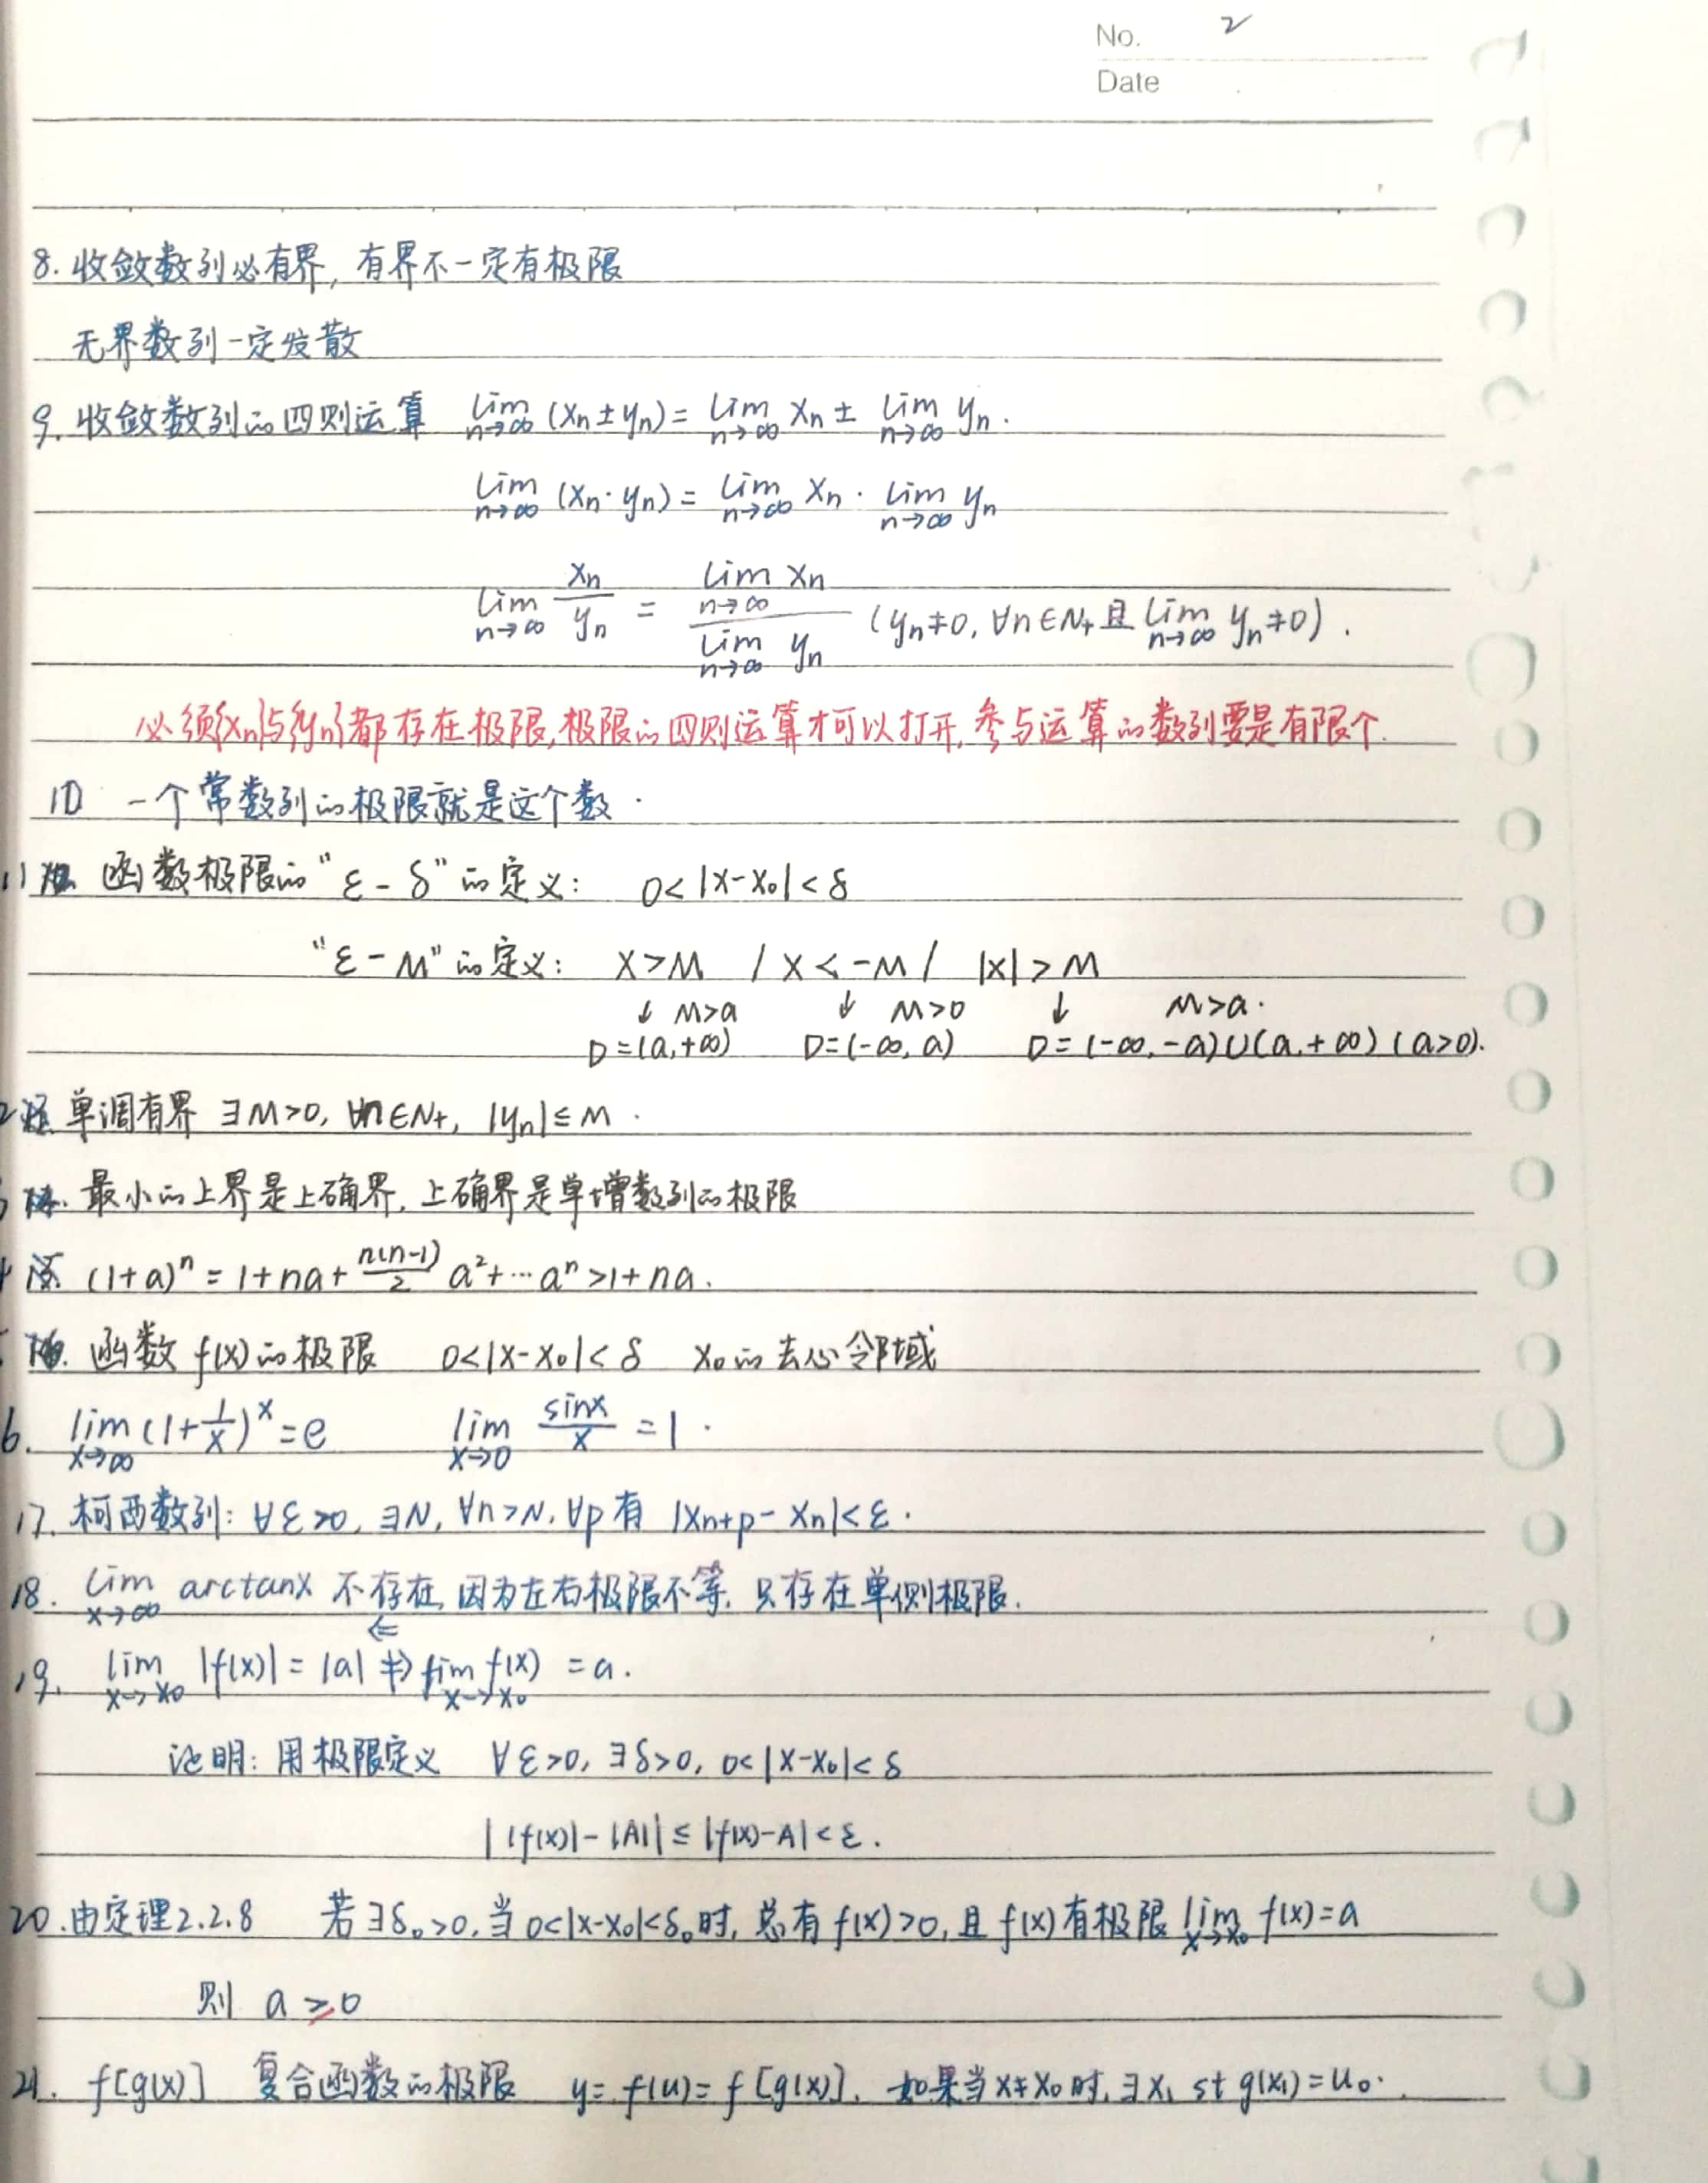 No. 2
Date
8. 收敛数列必有界, 有界不一定有极限
无界数列一定发散
9. 收敛数列的四则运算 lim n→∞ (xn±yn) = lim n→∞ xn ± lim n→∞ yn.
lim n→∞ (xn·yn) = lim n→∞ xn · lim n→∞ yn
lim n→∞ xn/yn = lim n→∞ xn / lim n→∞ yn (yn≠0, ∀n∈N+ 且 lim n→∞ yn≠0).
必须{xn}与{yn}都存在极限, 极限的四则运算才可以打开, 参与运算的数列要是有限个.
10 一个常数列的极限就是这个数.
11 函数极限的"ε-δ"的定义: 0<|x-x0|<δ
"ε-M"的定义: x>M / x<-M / |x|>M
↓ M>a ↓ M>0 ↓ M>a.
D=(a,+∞) D=(-∞, a) D=(-∞,-a)∪(a,+∞) (a>0).
2 单调有界 ∃M>0, ∀n∈N+, |yn|≤M.
3 最小的上界是上确界, 上确界是单增数列的极限
4 (1+a)^n = 1+na+ n(n-1)/2 a²+…a^n >1+na.
5 函数f(x)的极限 0<|x-x0|<δ x0的去心邻域
6. lim x→∞ (1+1/x)^x = e lim x→0 sinx/x = 1.
17. 柯西数列: ∀ε>0, ∃N, ∀n>N, ∀p 有 |xn+p - xn|<ε.
18. lim x→∞ arctanx 不存在, 因为左右极限不等, 只存在单侧极限.
⇐
19. lim x→x0 |f(x)| = |a| ⇏ lim x→x0 f(x) = a.
证明: 用极限定义 ∀ε>0, ∃δ>0, 0<|x-x0|<δ
||f(x)|-|A|| ≤ |f(x)-A|<ε.
20. 由定理2.2.8 若∃δ0>0, 当0<|x-x0|<δ0时, 总有f(x)>0, 且f(x)有极限 lim x→x0 f(x)=a
则 a≥0
21. f[g(x)] 复合函数的极限 y=f(u)=f[g(x)], 如果当x≠x0时, ∃x1 st g(x1)=u0.